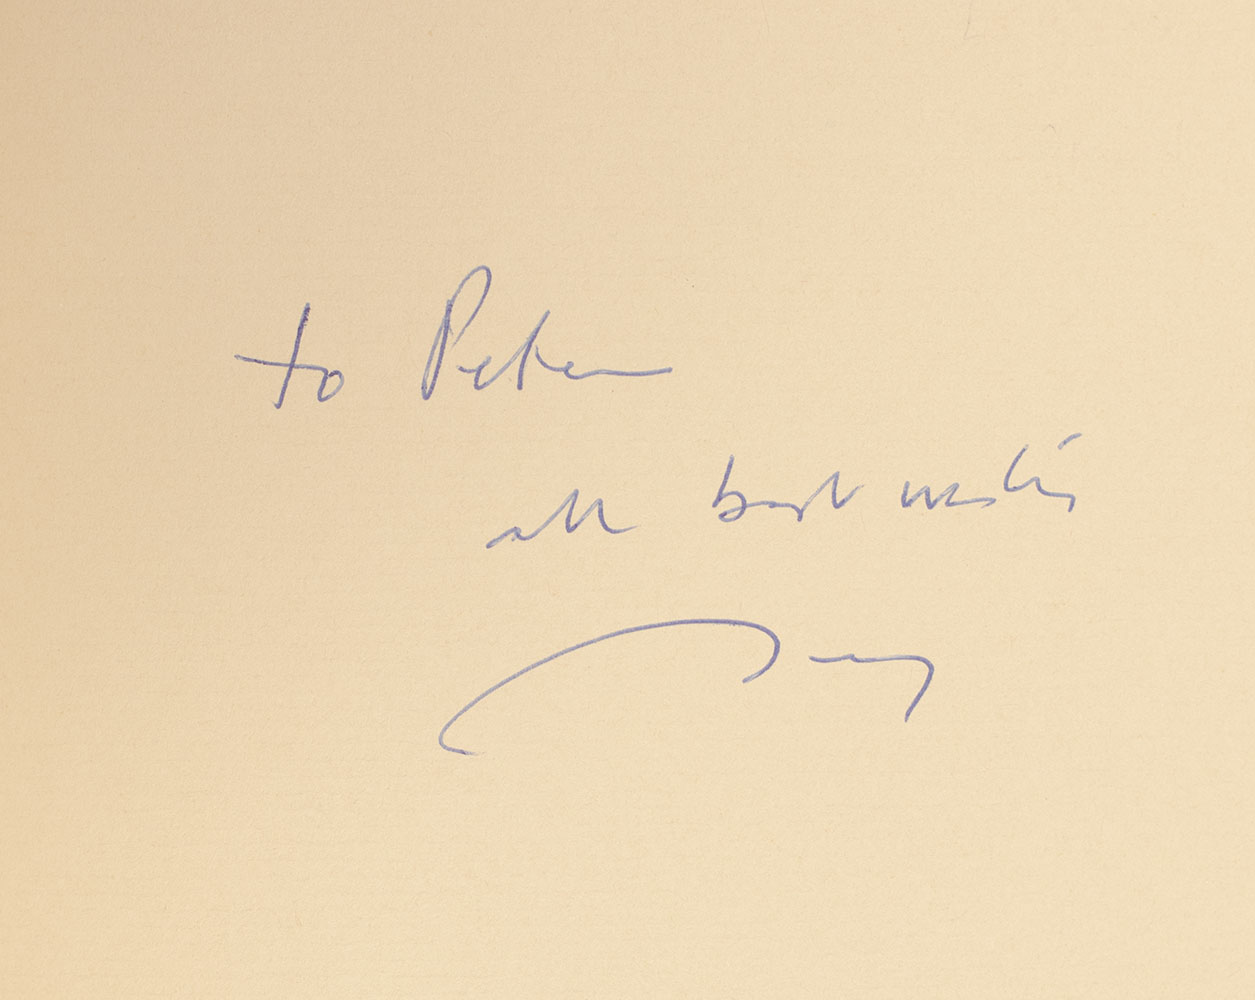 to Peter
all best wishes